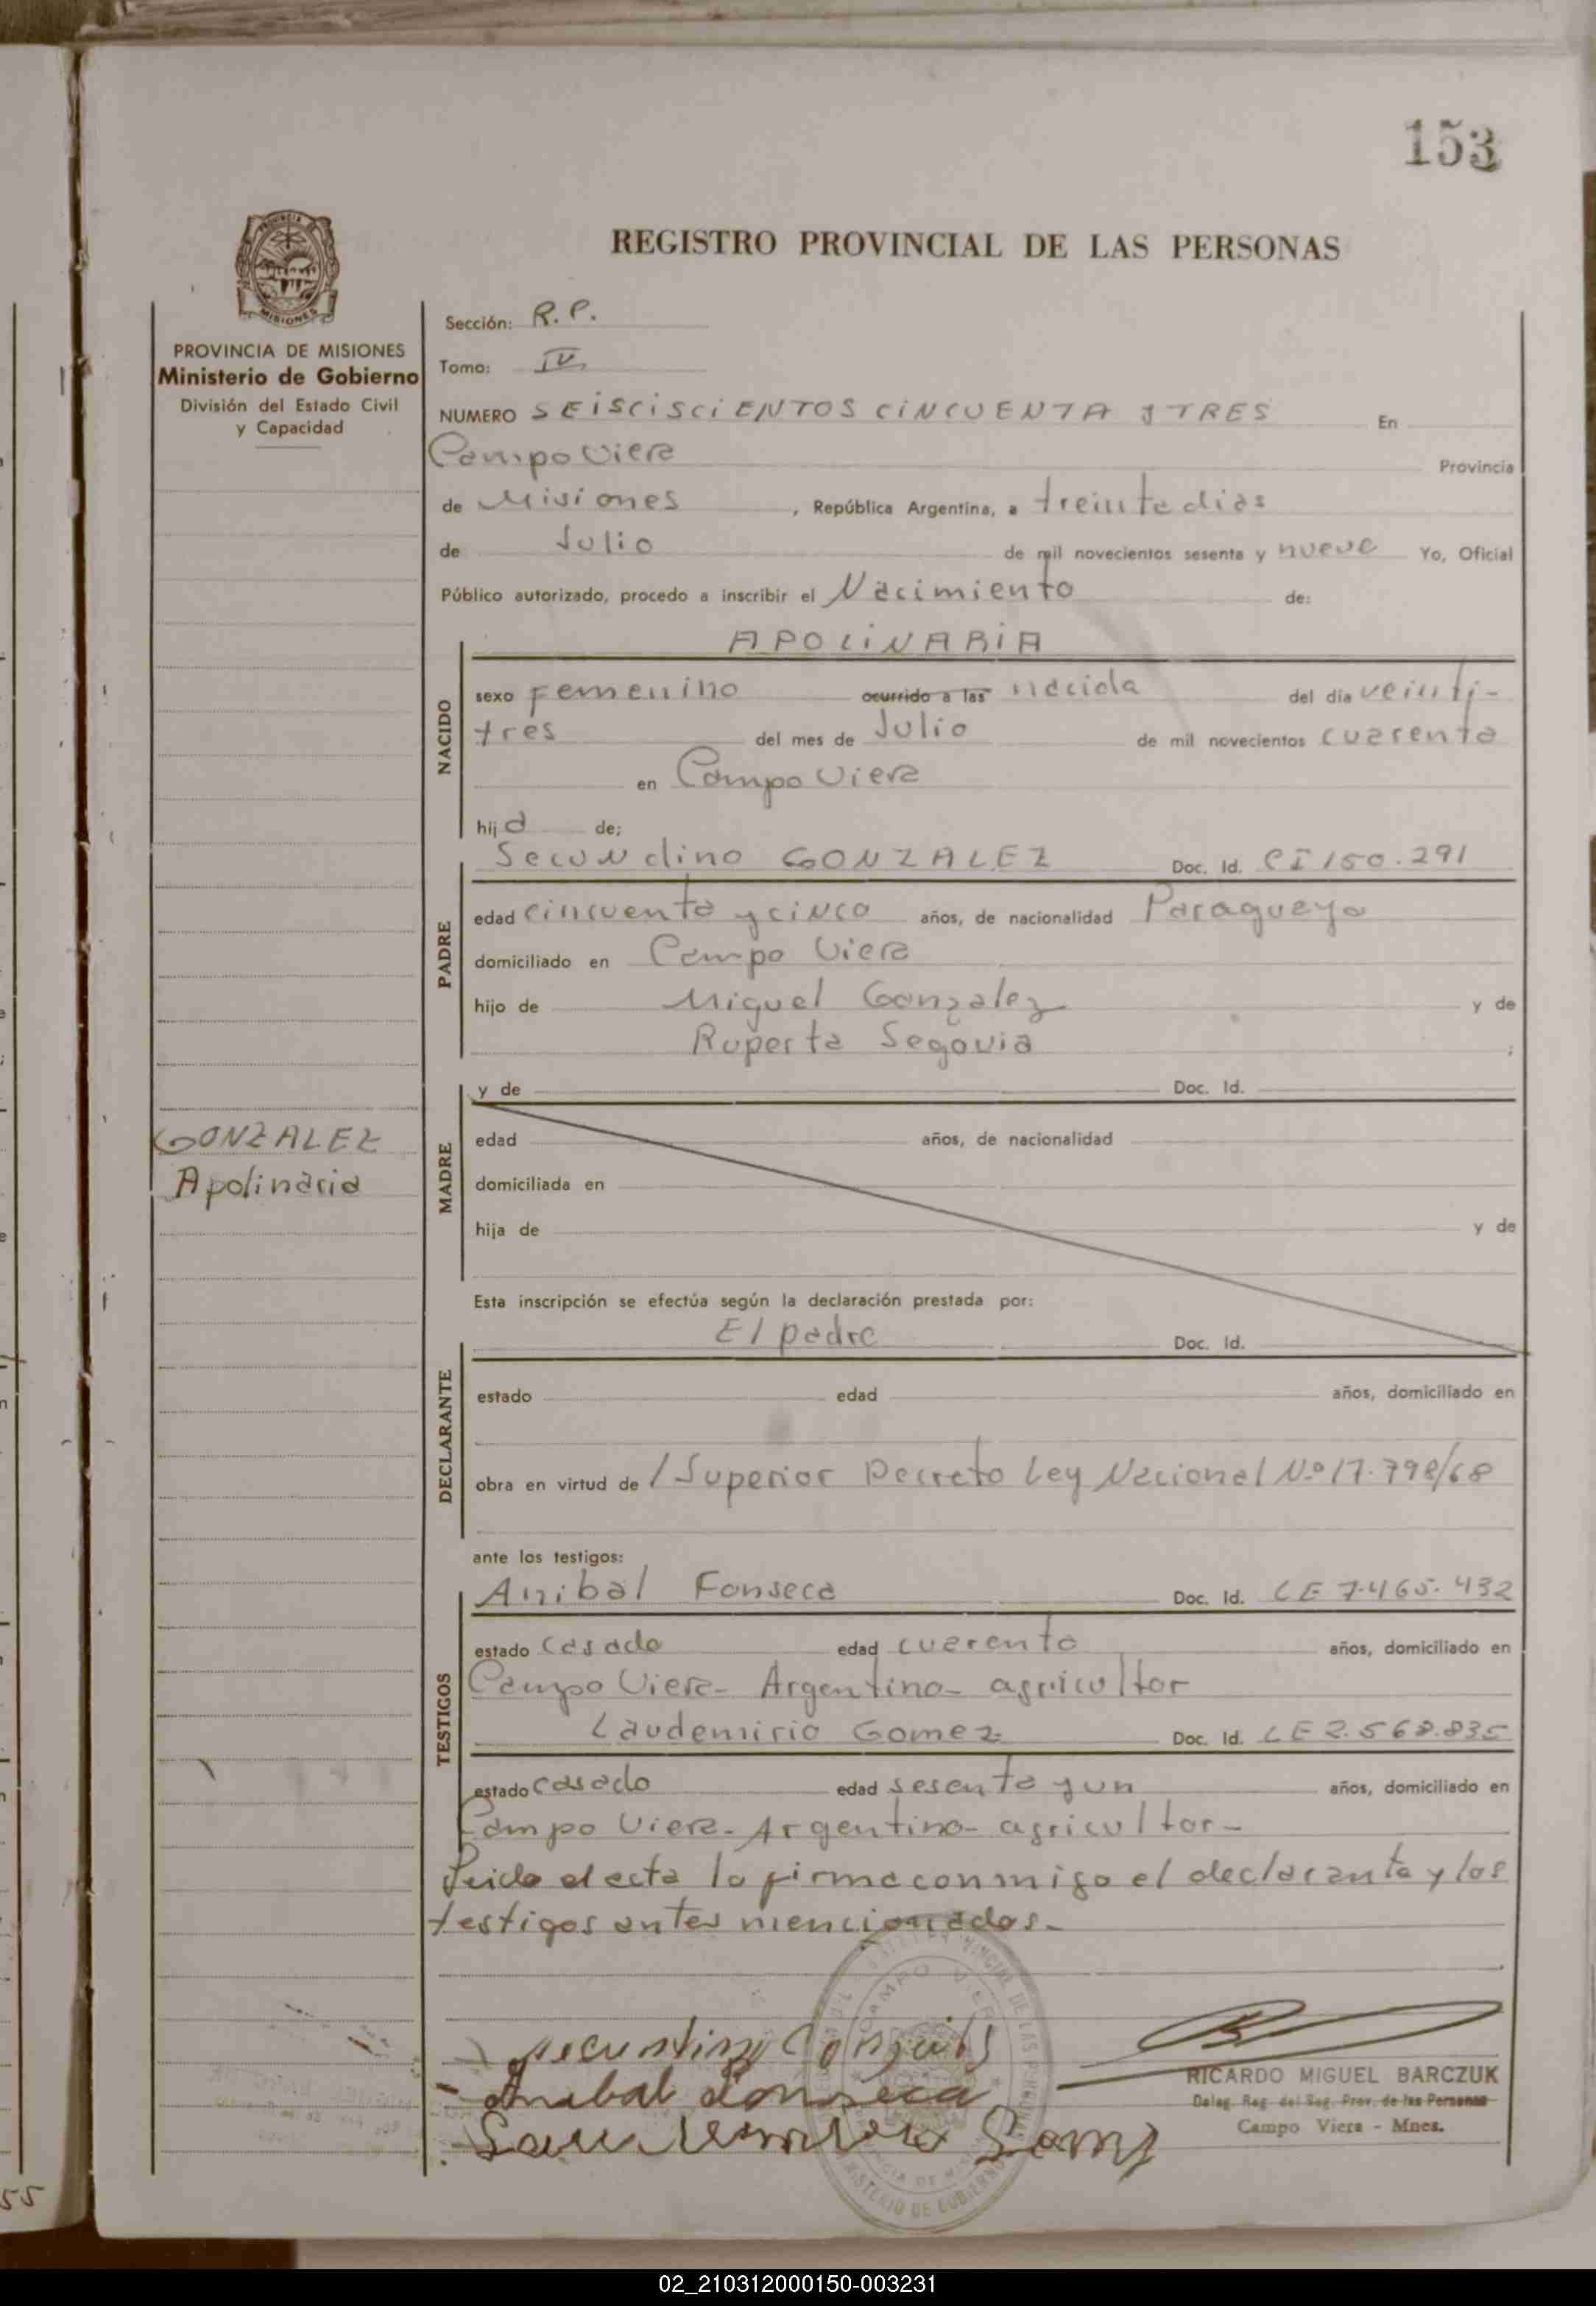 153
REGISTRO PROVINCIAL DE LAS PERSONAS
PROVINCIA DE MISIONES
Ministerio de Gobierno
División del Estado Civil
y Capacidad
Sección: R.P.
Tomo: IV
NUMERO SEISCISCIENTOS CINCUENTA y TRES En
Campo Viera Provincia
de Misiones, República Argentina, a treinta dias
de Julio de mil novecientos sesenta y nueve Yo, Oficial
Público autorizado, procedo a inscribir el Nacimiento de:
NACIDO
APOLINARIA
sexo Femenino ocurrido a las nacida del día veinti-
tres del mes de Julio de mil novecientos cuarenta
en Campo Viera
hija de;
PADRE
Secundino GONZALEZ Doc. Id. CI 150.291
edad cincuenta y cinco años, de nacionalidad Paraguaya
domiciliado en Campo Viera
hijo de Miguel Gonzalez y de
Ruperta Segovia ;
MADRE
y de Doc. Id.
edad años, de nacionalidad
domiciliada en
hija de y de
GONZALEZ
Apolinaria
Esta inscripción se efectúa según la declaración prestada por:
DECLARANTE
El padre Doc. Id.
estado edad años, domiciliado en
obra en virtud de / Superior Decreto Ley Nacional N.º 17.798/68
ante los testigos:
TESTIGOS
Anibal Fonseca Doc. Id. LE 7.465.432
estado casado edad cuarenta años, domiciliado en
Campo Viera- Argentino- agricultor
Laudemirio Gomez Doc. Id. LE 2.568.835
estado casado edad sesenta y un años, domiciliado en
Campo Viera- Argentino- agricultor-
Leida el acta la firma conmigo el declarante y los
testigos antes mencionados-
Anibal Fonseca
RICARDO MIGUEL BARCZUK
Deleg. Reg. del Reg. Prov. de las Personas
Campo Viera - Mnes.
55
02_210312000150-003231